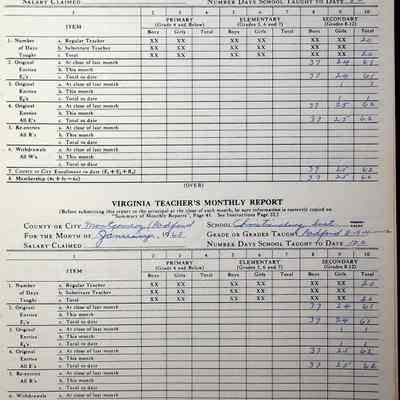 SALARY CLAIMED NUMBER DAYS SCHOOL TAUGHT TO DATE
1 2 3 4 5 6 7 8 9 10
ITEM PRIMARY (Grade 4 and Below) ELEMENTARY (Grades 5, 6 and 7) SECONDARY (Grades 8-12)
Boys Girls Total Boys Girls Total Boys Girls Total
1. Number a. Regular Teacher XX XX XX XX XX XX 20
of Days b. Substitute Teacher XX XX XX XX XX XX
Taught c. Total XX XX XX XX XX XX 20
2. Original a. At close of last month 37 24 61
Entries b. This month
E₁'s c. Total to date 37 24 61
3. Original a. At close of last month 1 1
Entries b. This month
E₂'s c. Total to date 1 1
4. Original a. At close of last month 37 25 62
Entries b. This month
All E's c. Total to date 37 25 62
5. Re-entries a. At close of last month
and b. This month
All R's c. Total to date
6. Withdrawals a. At close of last month
and b. This month
All W's c. Total to date
7. County or City Enrollment to date 37 25 62
8. Membership (4c + 5c – 6c) 37 25 62
(OVER)
VIRGINIA TEACHER'S MONTHLY REPORT
(Before submitting this report to the principal at the close of each month, be sure information is correctly copied on
"Summary of Monthly Reports", Page 41. See Instructions Page 22.)
COUNTY OR CITY Montgomery Radford SCHOOL Christiansburg Inst
FOR THE MONTH OF January, 1965 GRADE OR GRADES TAUGHT Radford
SALARY CLAIMED NUMBER DAYS SCHOOL TAUGHT TO DATE
1 2 3 4 5 6 7 8 9 10
ITEM PRIMARY (Grade 4 and Below) ELEMENTARY (Grades 5, 6 and 7) SECONDARY (Grades 8-12)
Boys Girls Total Boys Girls Total Boys Girls Total
1. Number a. Regular Teacher XX XX XX XX XX XX 20
of Days b. Substitute Teacher XX XX XX XX XX XX
Taught c. Total XX XX XX XX XX XX 20
2. Original a. At close of last month 37 24 61
Entries b. This month
E₁'s c. Total to date 37 24 61
3. Original a. At close of last month 1 1
Entries b. This month
E₂'s c. Total to date 1 1
4. Original a. At close of last month 37 25 62
Entries b. This month
All E's c. Total to date 37 25 62
5. Re-entries a. At close of last month
and b. This month
All R's c. Total to date
6. Withdrawals a. At close of last month